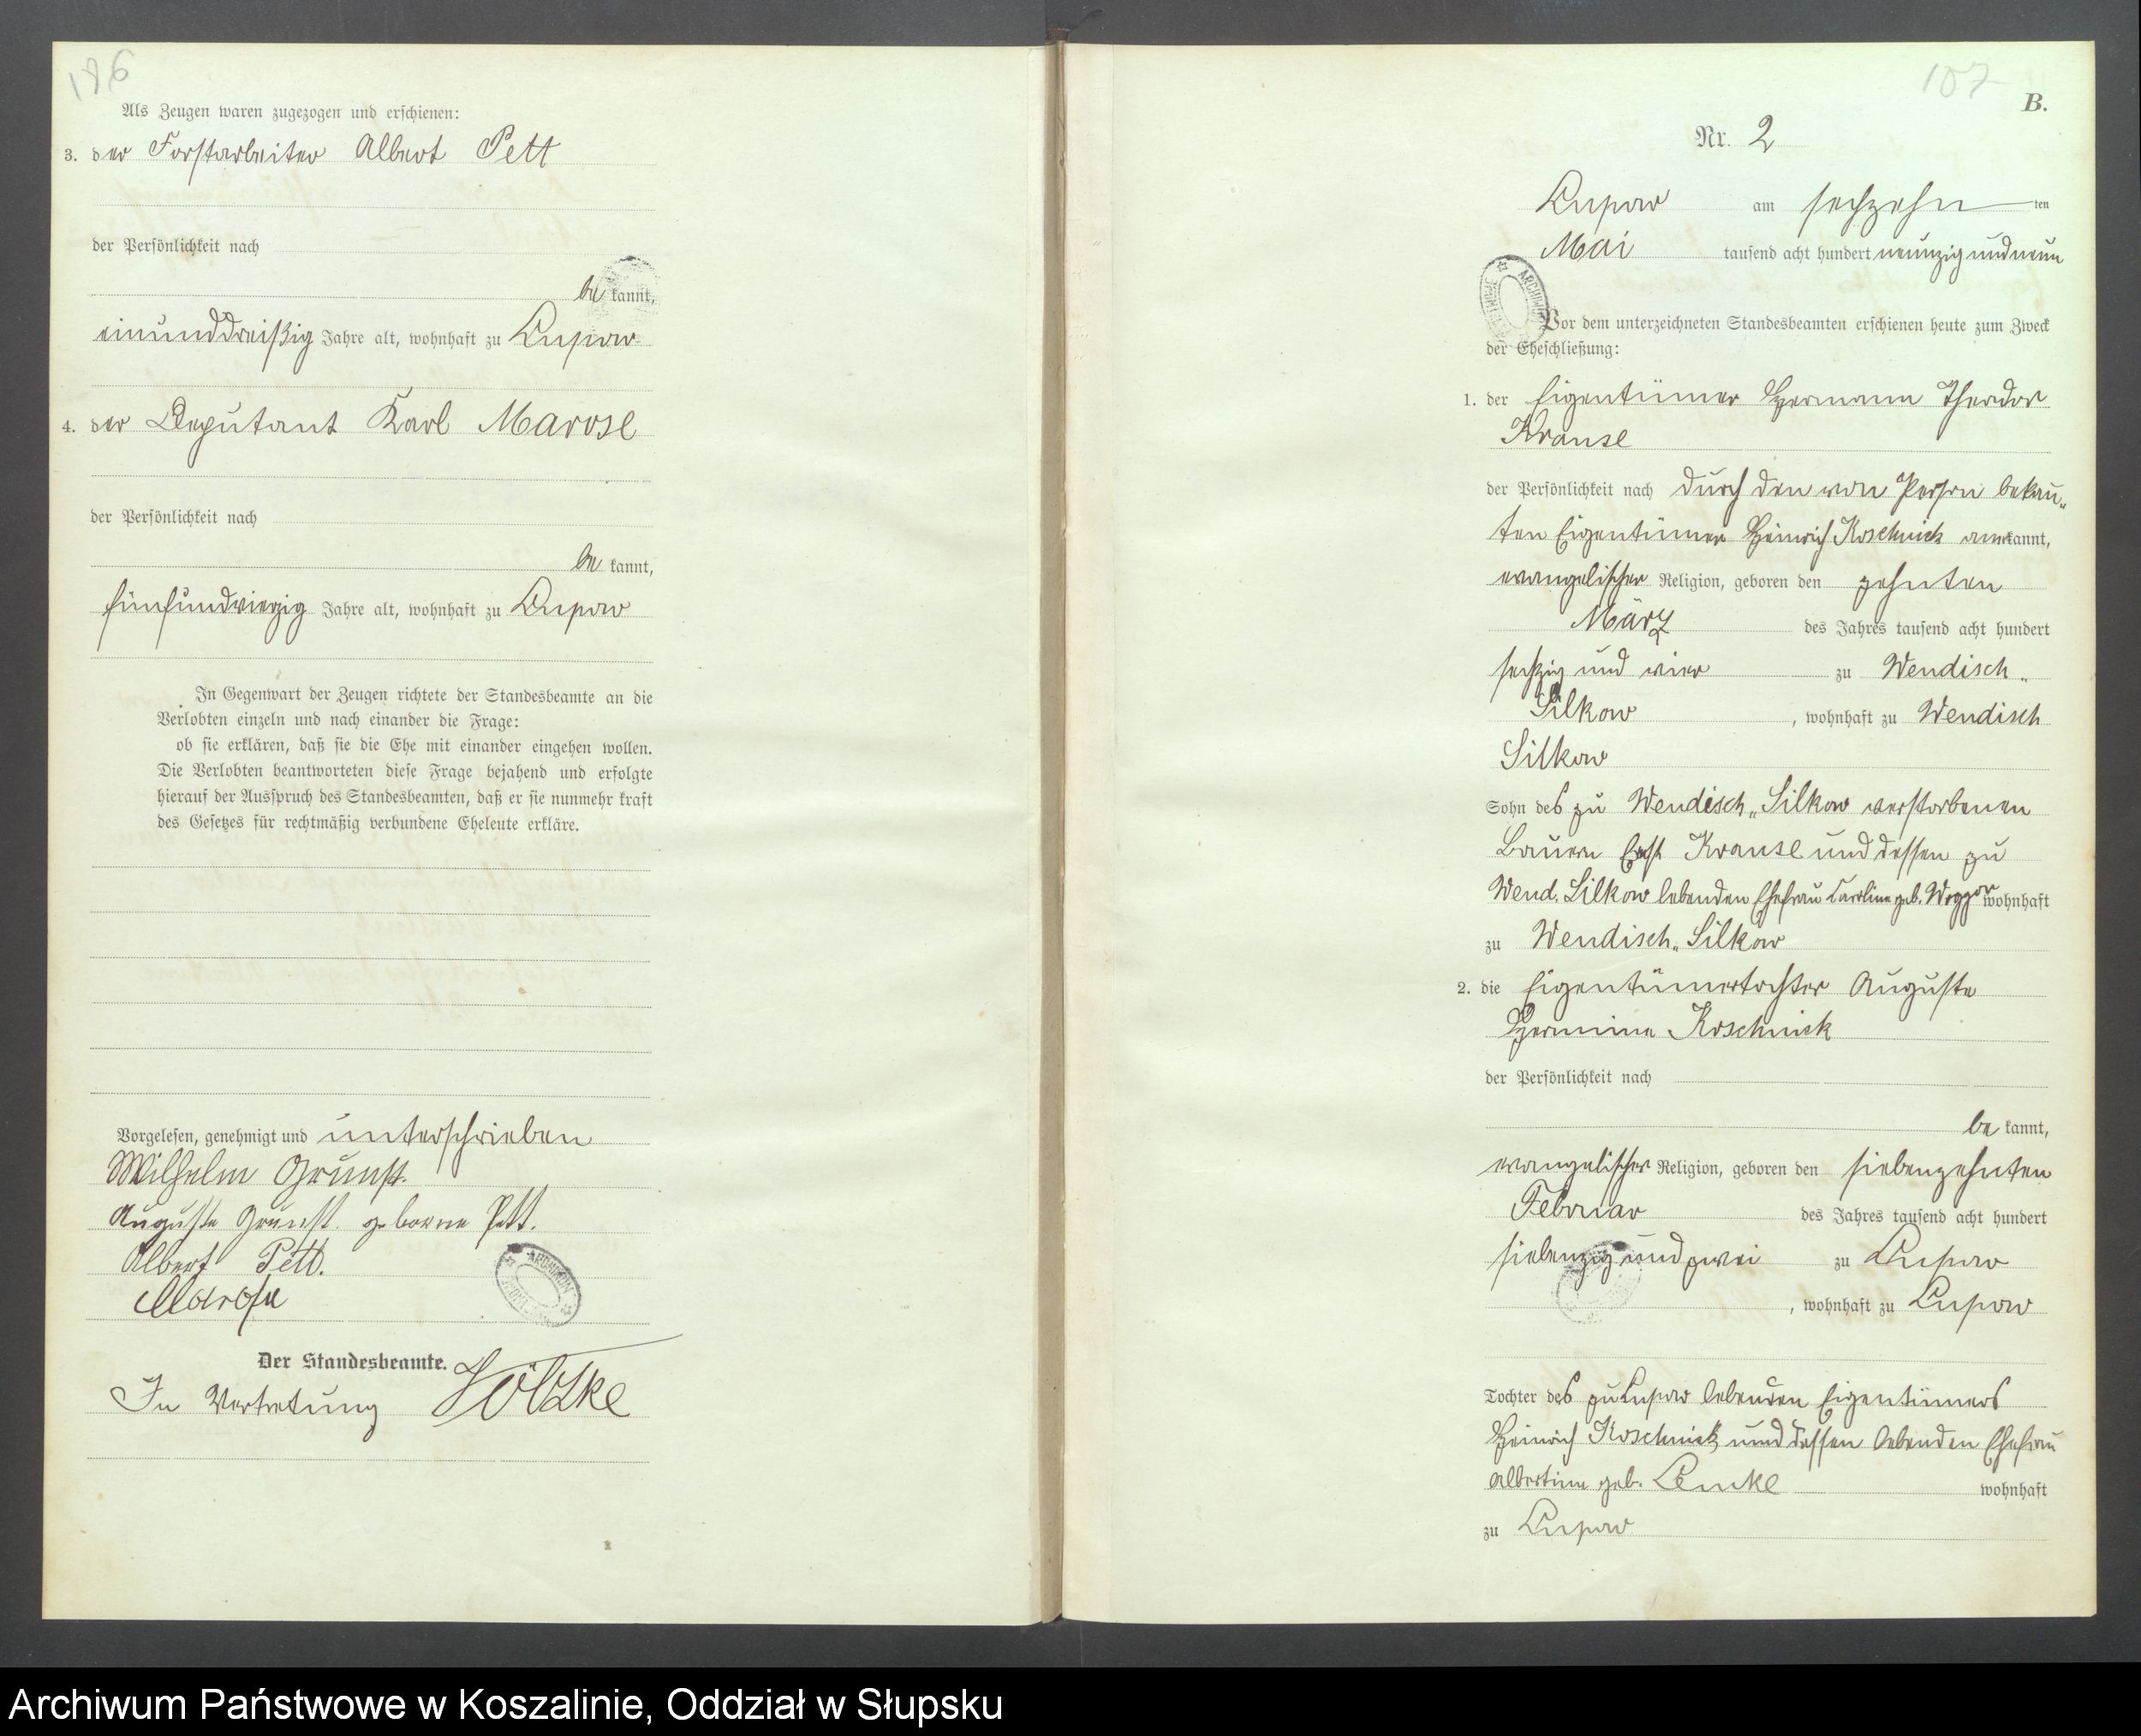 186
Als Zeugen waren zugezogen und erschienen:
3. der Forstarbeiter Albert Pett
der Persönlichkeit nach
be kannt,
einunddreißig Jahre alt, wohnhaft zu Lupow
4. der Deputant Karl Marose
der Persönlichkeit nach
be kannt,
fünfundvierzig Jahre alt, wohnhaft zu Lupow
In Gegenwart der Zeugen richtete der Standesbeamte an die
Verlobten einzeln und nach einander die Frage:
ob sie erklären, daß sie die Ehe mit einander eingehen wollen.
Die Verlobten beantworteten diese Frage bejahend und erfolgte
hierauf der Ausspruch des Standesbeamten, daß er sie nunmehr kraft
des Gesetzes für rechtmäßig verbundene Eheleute erkläre.
Vorgelesen, genehmigt und unterschrieben
Wilhelm Grunst.
Auguste Grunst. geborne Pett.
Albert Pett.
Marose
Der Standesbeamte.
In Vertretung
107
B.
Nr. 2
Lupow am sechzehn ten
Mai tausend acht hundert neunzig und neun
ARCHIWUM
Vor dem unterzeichneten Standesbeamten erschienen heute zum Zweck
der Eheschließung:
1. der Eigentümer Hermann Theodor
Krause
der Persönlichkeit nach durch den von Person bekan„
ten Eigentümer Heinrich Koschnick anerkannt,
evangelischer Religion, geboren den zehnten
März des Jahres tausend acht hundert
sechzig und vier zu Wendisch„
Silkow, wohnhaft zu Wendisch
Silkow
Sohn des zu Wendisch„Silkow verstorbenen
Bauern Krause und dessen zu
Wend. Silkow lebenden Ehefrau Caroline geb. wohnhaft
zu Wendisch„Silkow
2. die Eigentümertochter Auguste
Hermine Koschnick
der Persönlichkeit nach
be kannt,
evangelischer Religion, geboren den siebenzehnten
Februar des Jahres tausend acht hundert
siebenzig und zwei zu Lupow
, wohnhaft zu Lupow
Tochter des zu Lupow lebenden Eigentümers
Heinrich Koschnick und dessen lebenden Ehefrau
Albertine geb. Lemke wohnhaft
zu Lupow
Archiwum Państwowe w Koszalinie, Oddział w Słupsku